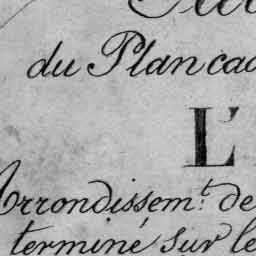 du Plan cad
L'
Arrondissem.t de
terminé sur le